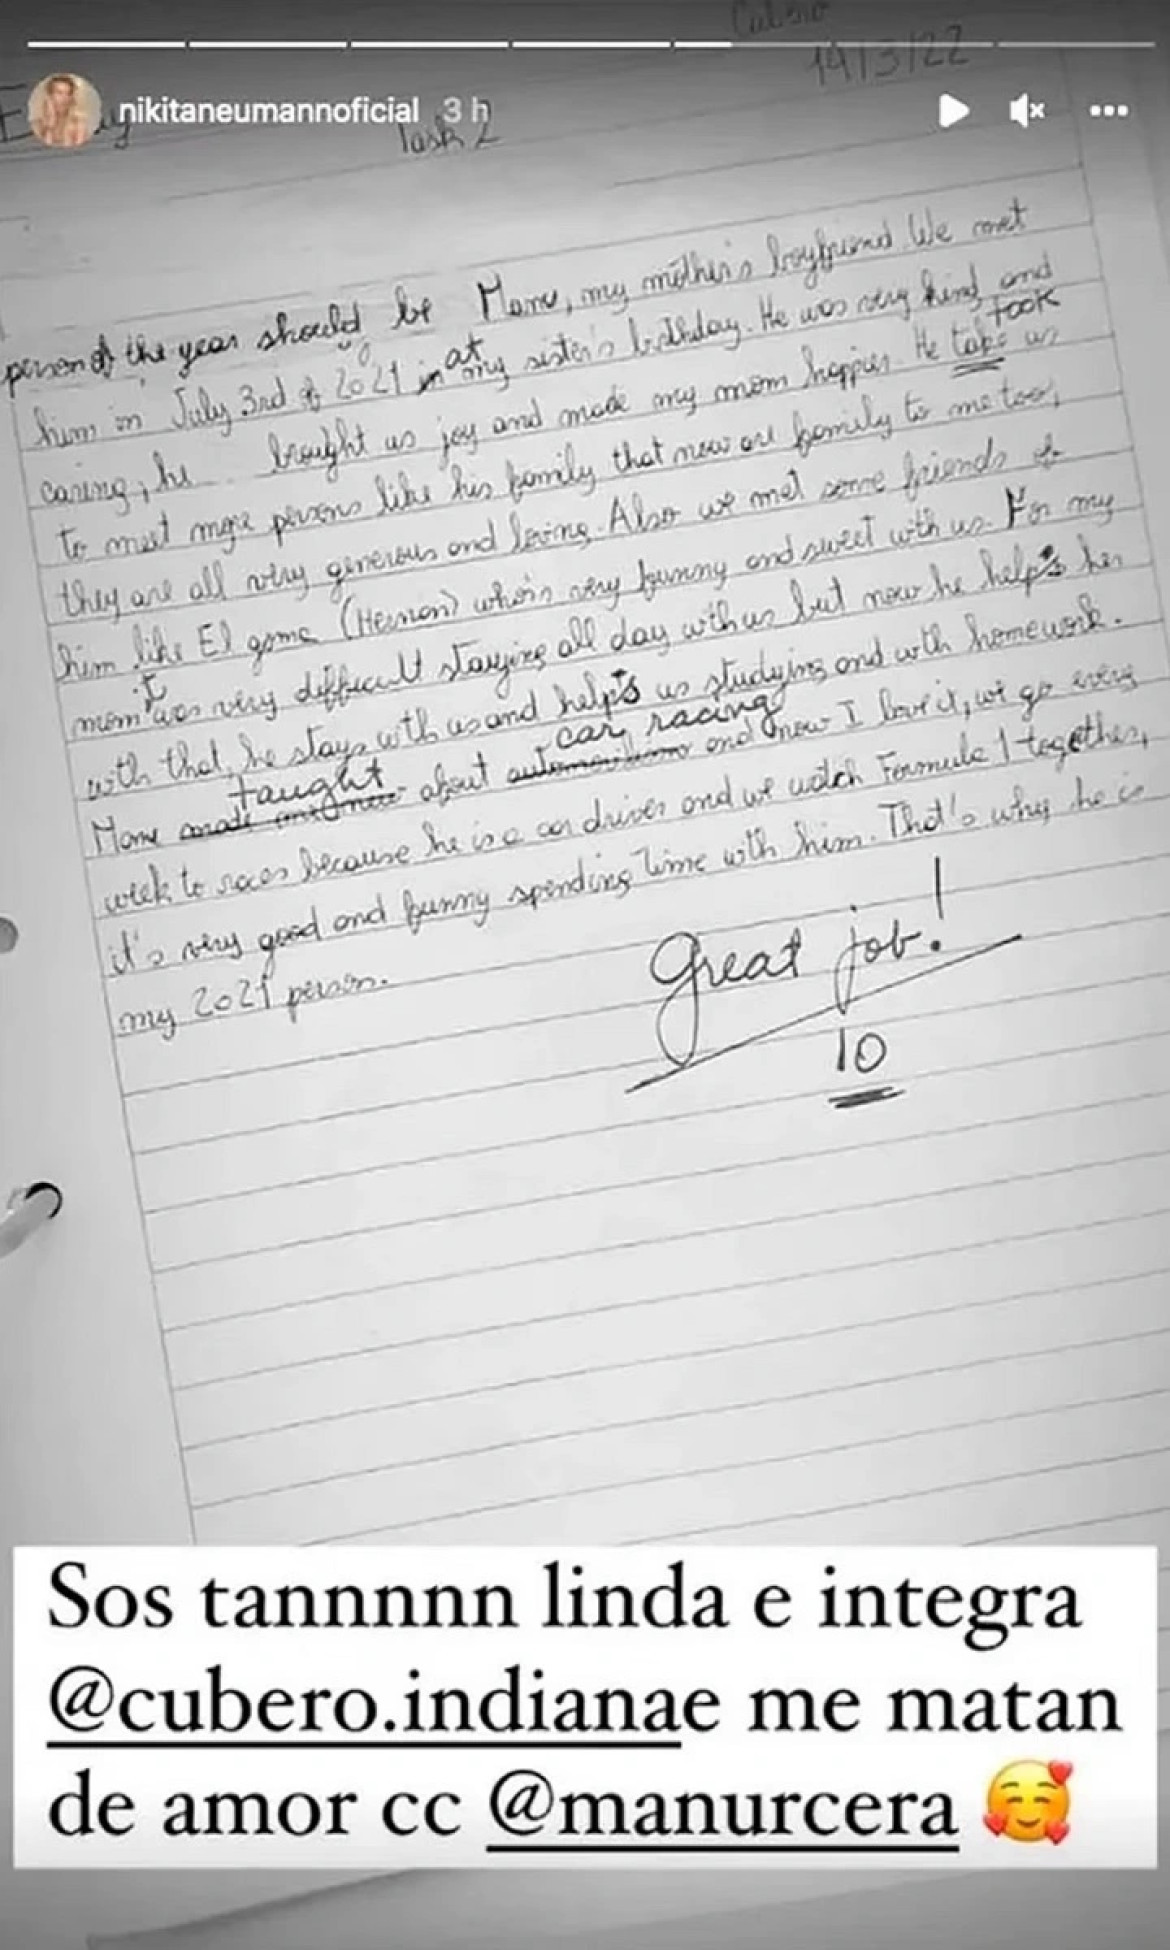 Cubero
14/3/22
nikitaneumannoficial 3 h
Task 2
person of the year should be Manu, my mother's boyfriend. We met
him in July 3rd of 2021 in at my sister's birthday. He was very kind and
caring, he brought us joy and made my mom happier. He take took us
to meet more persons like his family that now are family to me too,
they are all very generous and loving. Also we met some friends of
him like El gome (Hernan) who's very funny and sweet with us. For my
mom it was very difficult staying all day with us but now he helps her
with that, he stays with us and helps us studying and with homework.
Manu made taught about automovilismo car racing and now I love it, we go every
week to races because he is a car driver and we watch Formula 1 together,
it's very good and funny spending time with him. That's why he is
my 2021 person.
Great job!
10
Sos tannnnnn linda e integra
@cubero.indianae me matan
de amor cc @manurcera 🥰